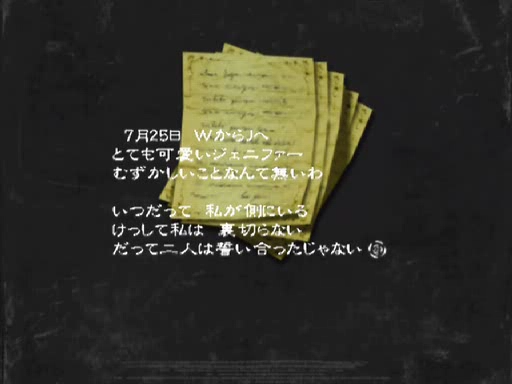 7月25日 WからJへ
とても可愛いジェニファー
むずかしいことなんて無いわ
いつだって 私が側にいる
けっして私は 裏切らない
だって二人は誓い合ったじゃない